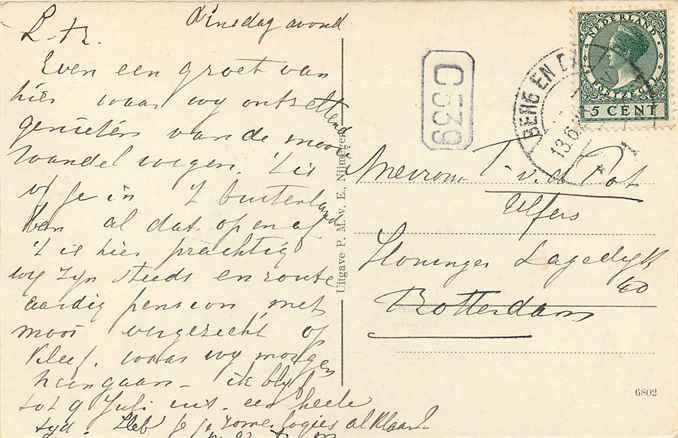 L. Tr. dinsdag avond
Even een groet van
hier waar wy ontzettend
genieten van de mooie
wandel wegen. 't is
of je in 't buitenland
ben al dat op en af
't is hier prachtig
wy zyn steeds en route
aardig pension met
mooi vergezicht op
Kleef, waar wy morgen
heen gaan - ik blyf
tot 9 Juli uit. een heele
tyd. Heb je je zomer logies al klaar?
Uitgave P. M. W. E., Nijmegen
C539
BERG EN DAL
13.6
NEDERLAND
POSTZEGEL
5 CENT
Mevrouw v. d. Pot
Elfers
Honinger Lagedyk
60
Rotterdam
6802